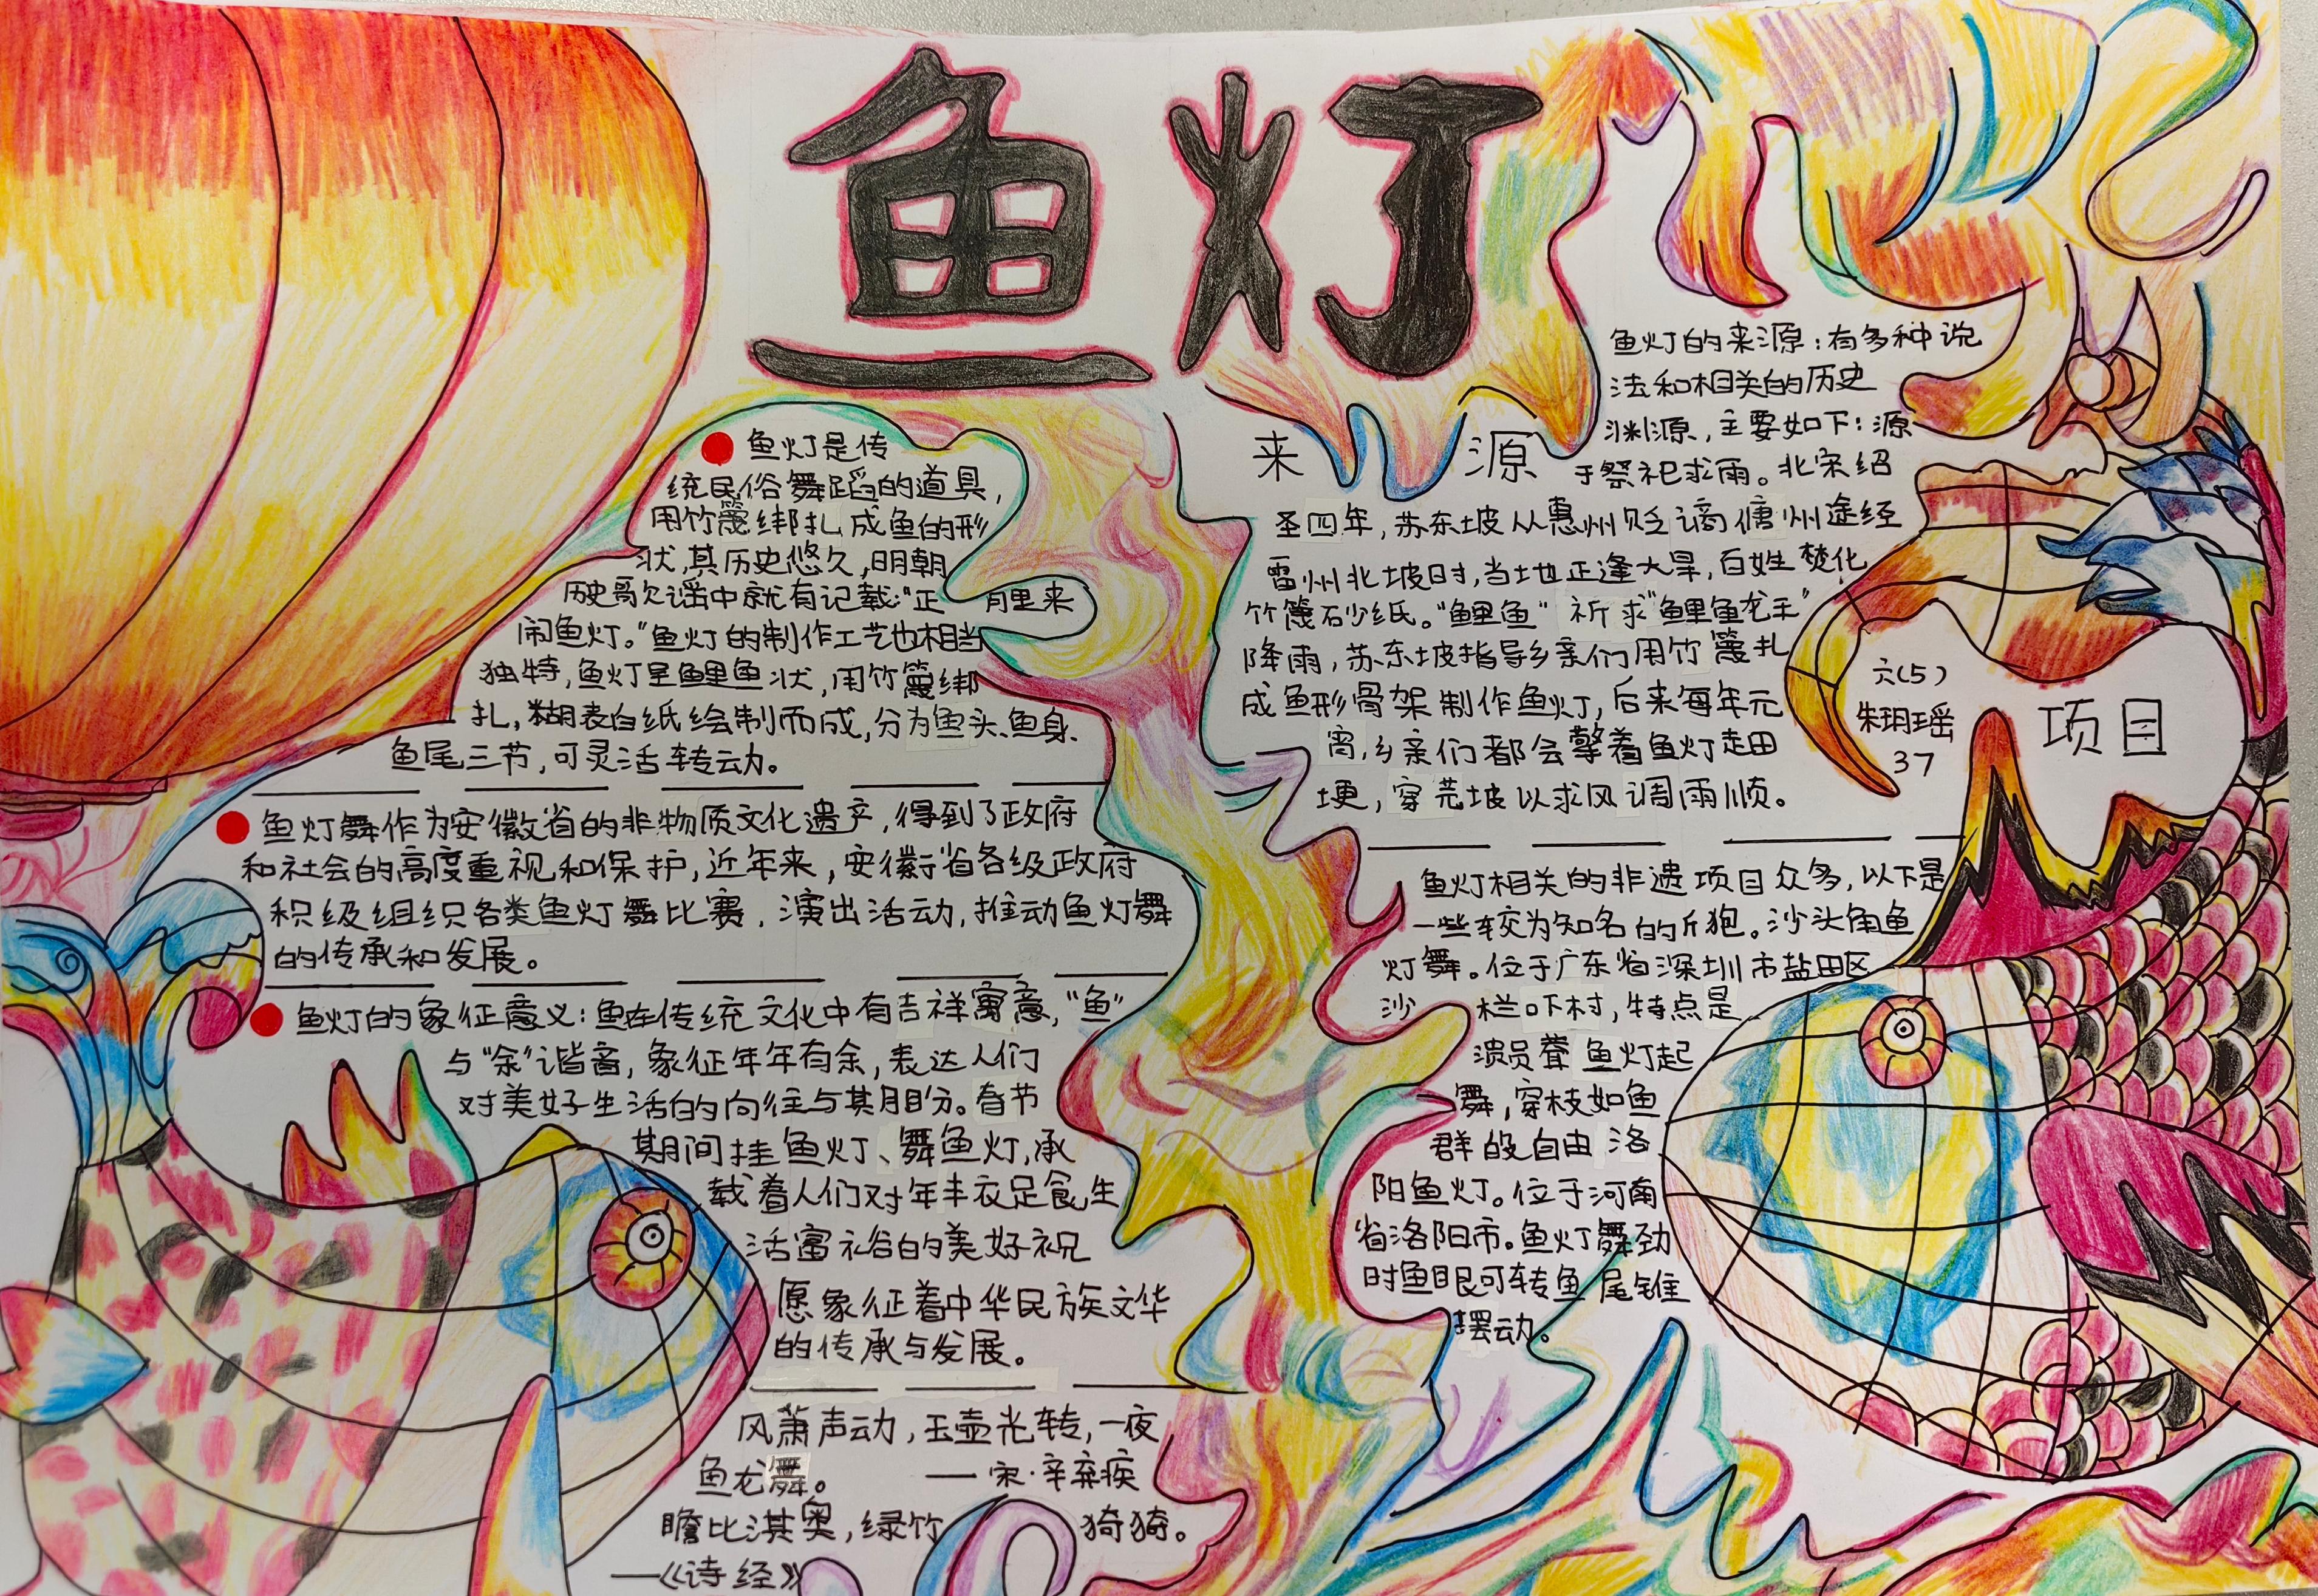 鱼灯
鱼灯是传
统民俗舞蹈的道具，
用竹篾绑扎成鱼的形
状，其历史悠久，明朝
历史歌谣中就有记载："正月里来
闹鱼灯。"鱼灯的制作工艺也相当
独特，鱼灯呈鲤鱼状，用竹篾绑
扎，糊表白纸绘制而成，分为鱼头、鱼身、
鱼尾三节，可灵活转动。
鱼灯舞作为安徽省的非物质文化遗产，得到了政府
和社会的高度重视和保护，近年来，安徽省各级政府
积级组织各类鱼灯舞比赛，演出活动，推动鱼灯舞
的传承和发展。
鱼灯的象征意义：鱼在传统文化中有吉祥寓意，"鱼"
与"余"谐音，象征年年有余，表达人们
对美好生活的向往与期盼。春节
期间挂鱼灯、舞鱼灯，承
载着人们对年丰衣足食生
活富裕的美好祝
愿象征着中华民族文华
的传承与发展。
风萧声动，玉壶光转，一夜
鱼龙舞。 ——宋·辛弃疾
瞻比淇奥，绿竹猗猗。
——《诗经》
来源
鱼灯的来源：有多种说
法和相关的历史
渊源，主要如下：源
于祭祀求雨。北宋绍
圣四年，苏东坡从惠州贬谪儋州途经
雷州北坡时，当地正逢大旱，百姓焚化
竹篾砂纸。"鲤鱼"祈求"鲤鱼龙王"
降雨，苏东坡指导乡亲们用竹篾扎
成鱼形骨架制作鱼灯，后来每年元
宵，乡亲们都会擎着鱼灯走田
埂，穿荒坡以求风调雨顺。
六(5)
朱玥瑶
37
项目
鱼灯相关的非遗项目众多，以下是
一些较为知名的。沙头角鱼
灯舞。位于广东省深圳市盐田区
沙栏吓村，特点是
演员举鱼灯起
舞，穿枝如鱼
群的自由洛
阳鱼灯。位于河南
省洛阳市。鱼灯舞动
时鱼眼可转鱼尾能
摆动。